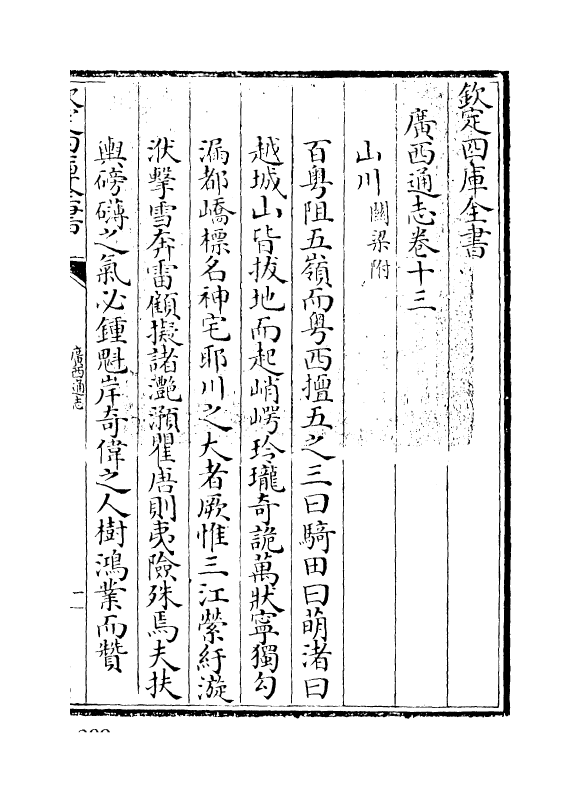 欽定四庫全書
廣西通志卷十三
山川關梁附
百粤阻五嶺而粤西擅五之三曰騎田曰萌渚曰
越城山皆拔地而起峭崿玲瓏奇詭萬狀寧獨勾
漏都嶠標名神宅耶川之大者厥惟三江縈紆漩
洑擊雪奔雷顧擬諸灧澦瞿唐則夷險殊焉夫扶
輿磅礴之氣必鍾魁岸奇偉之人樹鴻業而贊
廣西通志
一